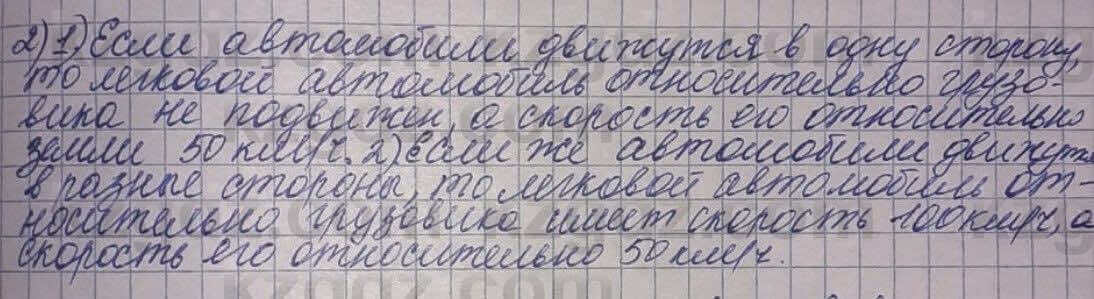 2) 1) Если автомобили движутся в одну сторону,
то легковой автомобиль относительно грузо-
вика не подвижен, а скорость его относительно
земли 50 км/ч. 2) Если же автомобили движутся
в разные стороны, то легковой автомобиль от-
носительно грузовика имеет скорость 100 км/ч, а
скорость его относительно 50 км/ч.